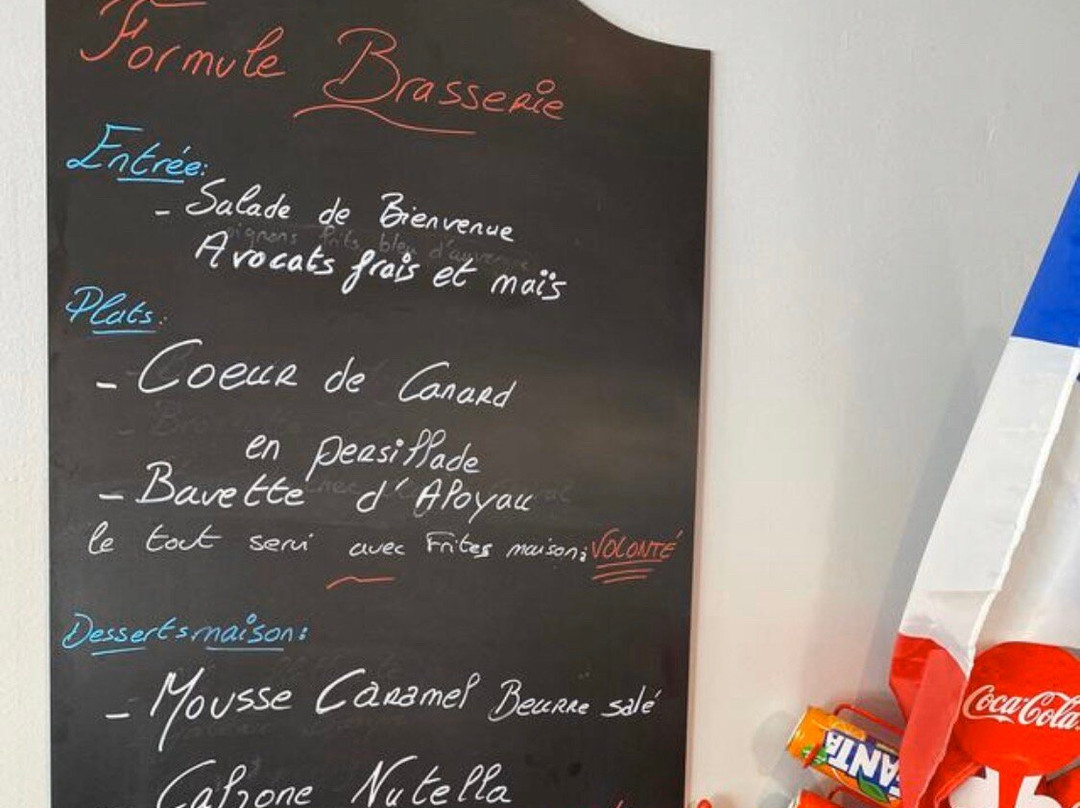 Formule Brasserie
Entrée:
- Salade de Bienvenue
oignons frits bleu d'auvergne
Avocats frais et maïs
Plats:
- Coeur de Canard
en persillade
- Bavette d'Aloyau
le tout servi avec Frites maison à VOLONTÉ
Desserts maison:
- Mousse Caramel Beurre salé
Calzone Nutella
Coca-Cola
FANTA